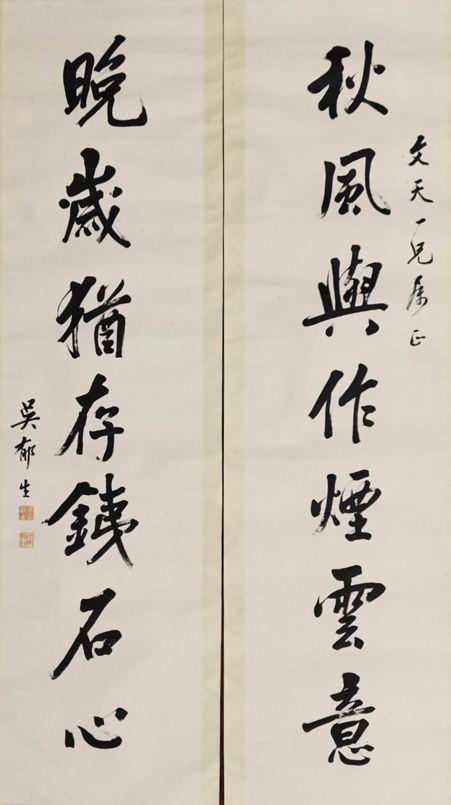 文天一兄属正
秋風與作煙雲意
晚歲猶存鐵石心
吳郁生